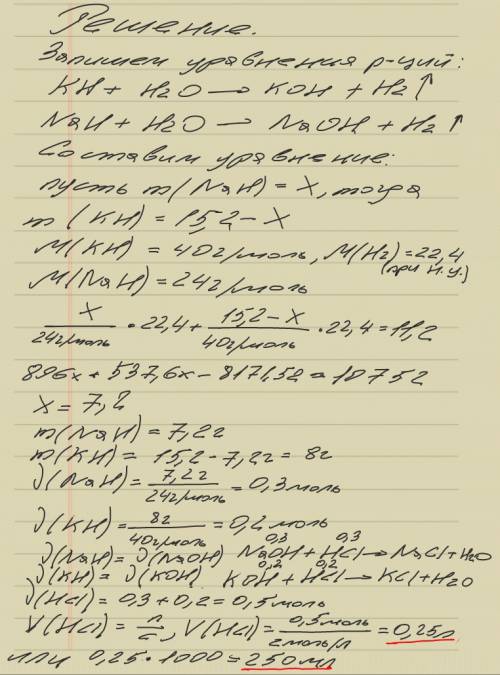 Решение.
Запишем уравнения р-ций:
KH + H2O → KOH + H2↑
NaH + H2O → NaOH + H2↑
Составим уравнение:
пусть m(NaH) = X, тогда
m(KH) = 15,2 - X
M(KH) = 40г/моль, M(H2) = 22,4
(при н.у.)
M(NaH) = 24г/моль
X/24г/моль • 22,4 + 15,2 - X/40г/моль • 22,4 = 11,2
896x + 537,6x - 8171,52 = 10752
X = 7,2
m(NaH) = 7,2г
m(KH) = 15,2 - 7,2г = 8г
ν(NaH) = 7,2г/24г/моль = 0,3моль
ν(KH) = 8г/40г/моль = 0,2моль
0,3 0,3
ν(NaH) = ν(NaOH) NaOH + HCl → NaCl + H2O
0,2 0,2
ν(KH) = ν(KOH) KOH + HCl → KCl + H2O
ν(HCl) = 0,3 + 0,2 = 0,5моль
V(HCl) = n/c, V(HCl) = 0,5моль/2моль/л = 0,25л
или 0,25 • 1000 = 250мл